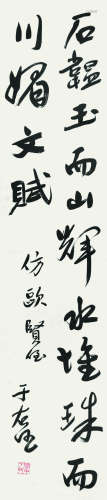 石韞玉而山輝水懷珠而
川媚文賦
仿歐賢
于右任